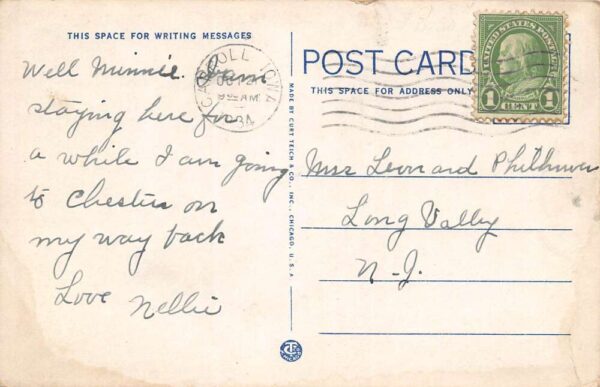 THIS SPACE FOR WRITING MESSAGES
Well Minnie I am
staying here for
a while I am going
to Chester on
my way back
Love Nellie
CARROLL IOWA
AM
MADE BY CURT TEICH & CO., INC., CHICAGO, U.S.A.
POST CARD
THIS SPACE FOR ADDRESS ONLY
UNITED STATES POSTAGE
1 CENT 1
Mrs Leonard
Long Valley
N-J.